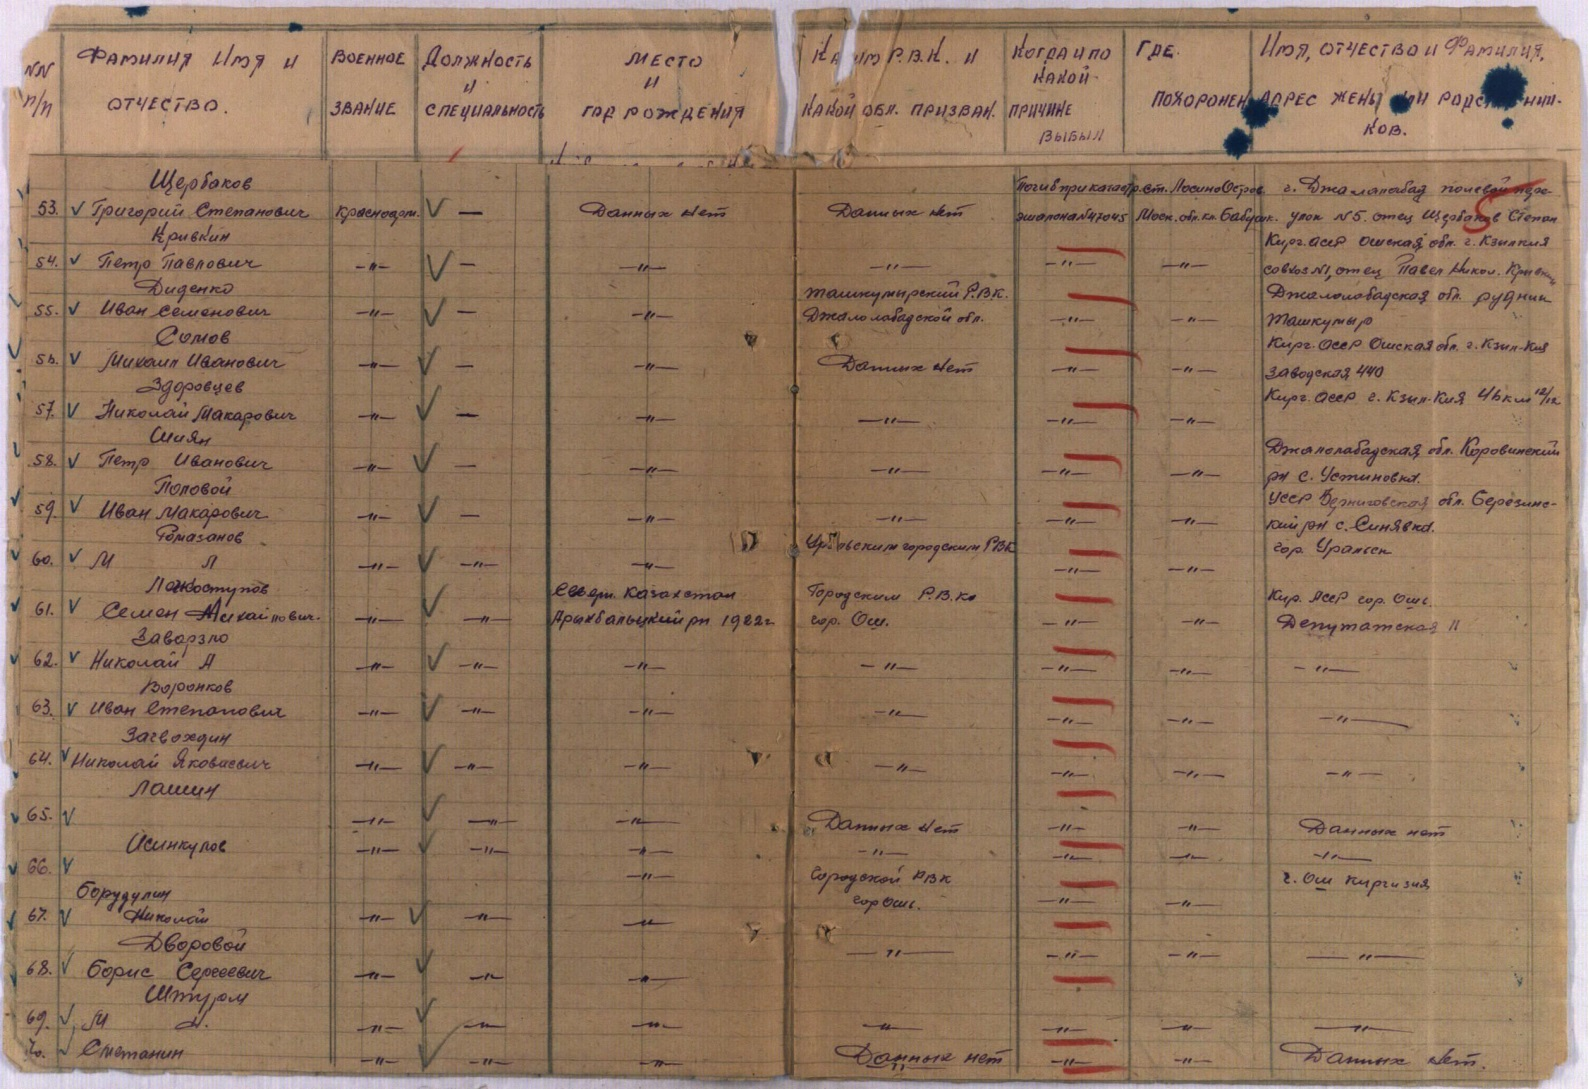 NN п/п
Фамилия Имя и отчество.
Военное звание
Должность и специальность
Место и год рождения
Р.В.К. и какой обл. призван.
Когда и по какой причине выбыл
Где похоронен
Имя, отчество и Фамилия,
адрес жены или родственни-
ков.
Щербаков
53. Григорий Степанович Красноарм. — Данных нет Данных нет
Погиб при катастр. эшалона №47045
ст. Лосино Остров Моск. обл. кл. Бабушк.
г. Джалалабад полевой пере-
улок №5. отец Щербаков Степан
5
Кривкин
54. Петр Павлович —"— — —"— —"— —"— —"—
Кирг. АССР Ошская обл. г. Кзылкия
совхоз №1, отец Павел Никол.
Диденко
55. Иван Семенович —"— — —"—
Ташкумырский Р.В.К.
Джалолабадской обл.
—"— —"—
Джалолабадская обл. рудник
Ташкумыр
Сомов
56. Михаил Иванович —"— — —"— Данных нет —"— —"—
Кирг. АССР Ошская обл. г. Кзыл-Кия
Заводская 440
Здоровцев
57. Николай Макарович —"— — —"— —"— —"— —"—
Кирг. АССР г. Кзыл-Кия 12/12
Шиян
58. Петр Иванович —"— — —"— —"— —"— —"—
Джалолабадская обл.
рн с. Устиновка.
Поповой
59. Иван Макарович —"— — —"— —"— —"— —"—
УССР обл. Березинс-
кий рн с. Синявка.
Ромазанов
60. М Л —"— —"— —"—
городским РВК
—"— —"—
гор. Уральск
61. Семен Михайлович. —"— —"—
Северн. Казахстан
рн 1922 г
Городским Р.В.К.
гор. Ош.
—"— —"—
Кир. АССР гор. Ош.
Депутатская 11
Заварзло
62. Николай А —"— —"— —"— —"— —"— —"— —"—
Воронков
63. Иван Степанович —"— —"— —"— —"— —"— —"— —"—
Загвоздин
64. Николай Яковлевич —"— —"— —"— —"— —"— —"— —"—
Лашин
65. —"— —"— —"— Данных нет —"— —"— Данных нет
Исинкулов
66. —"— —"— —"— —"— —"— —"— —"—
Борудулин
67. Николай —"— —"— —"—
Городской РВК
гор Ош.
—"— —"—
г. Ош Киргизия
Дворовой
68. Борис Сергеевич —"— —"— —"— —"— —"— —"— —"—
Штурм
69. М Н. —"— —"— —"— —"— —"— —"— —"—
70. Сметанин —"— —"— —"— Данных нет —"— —"— Данных нет.